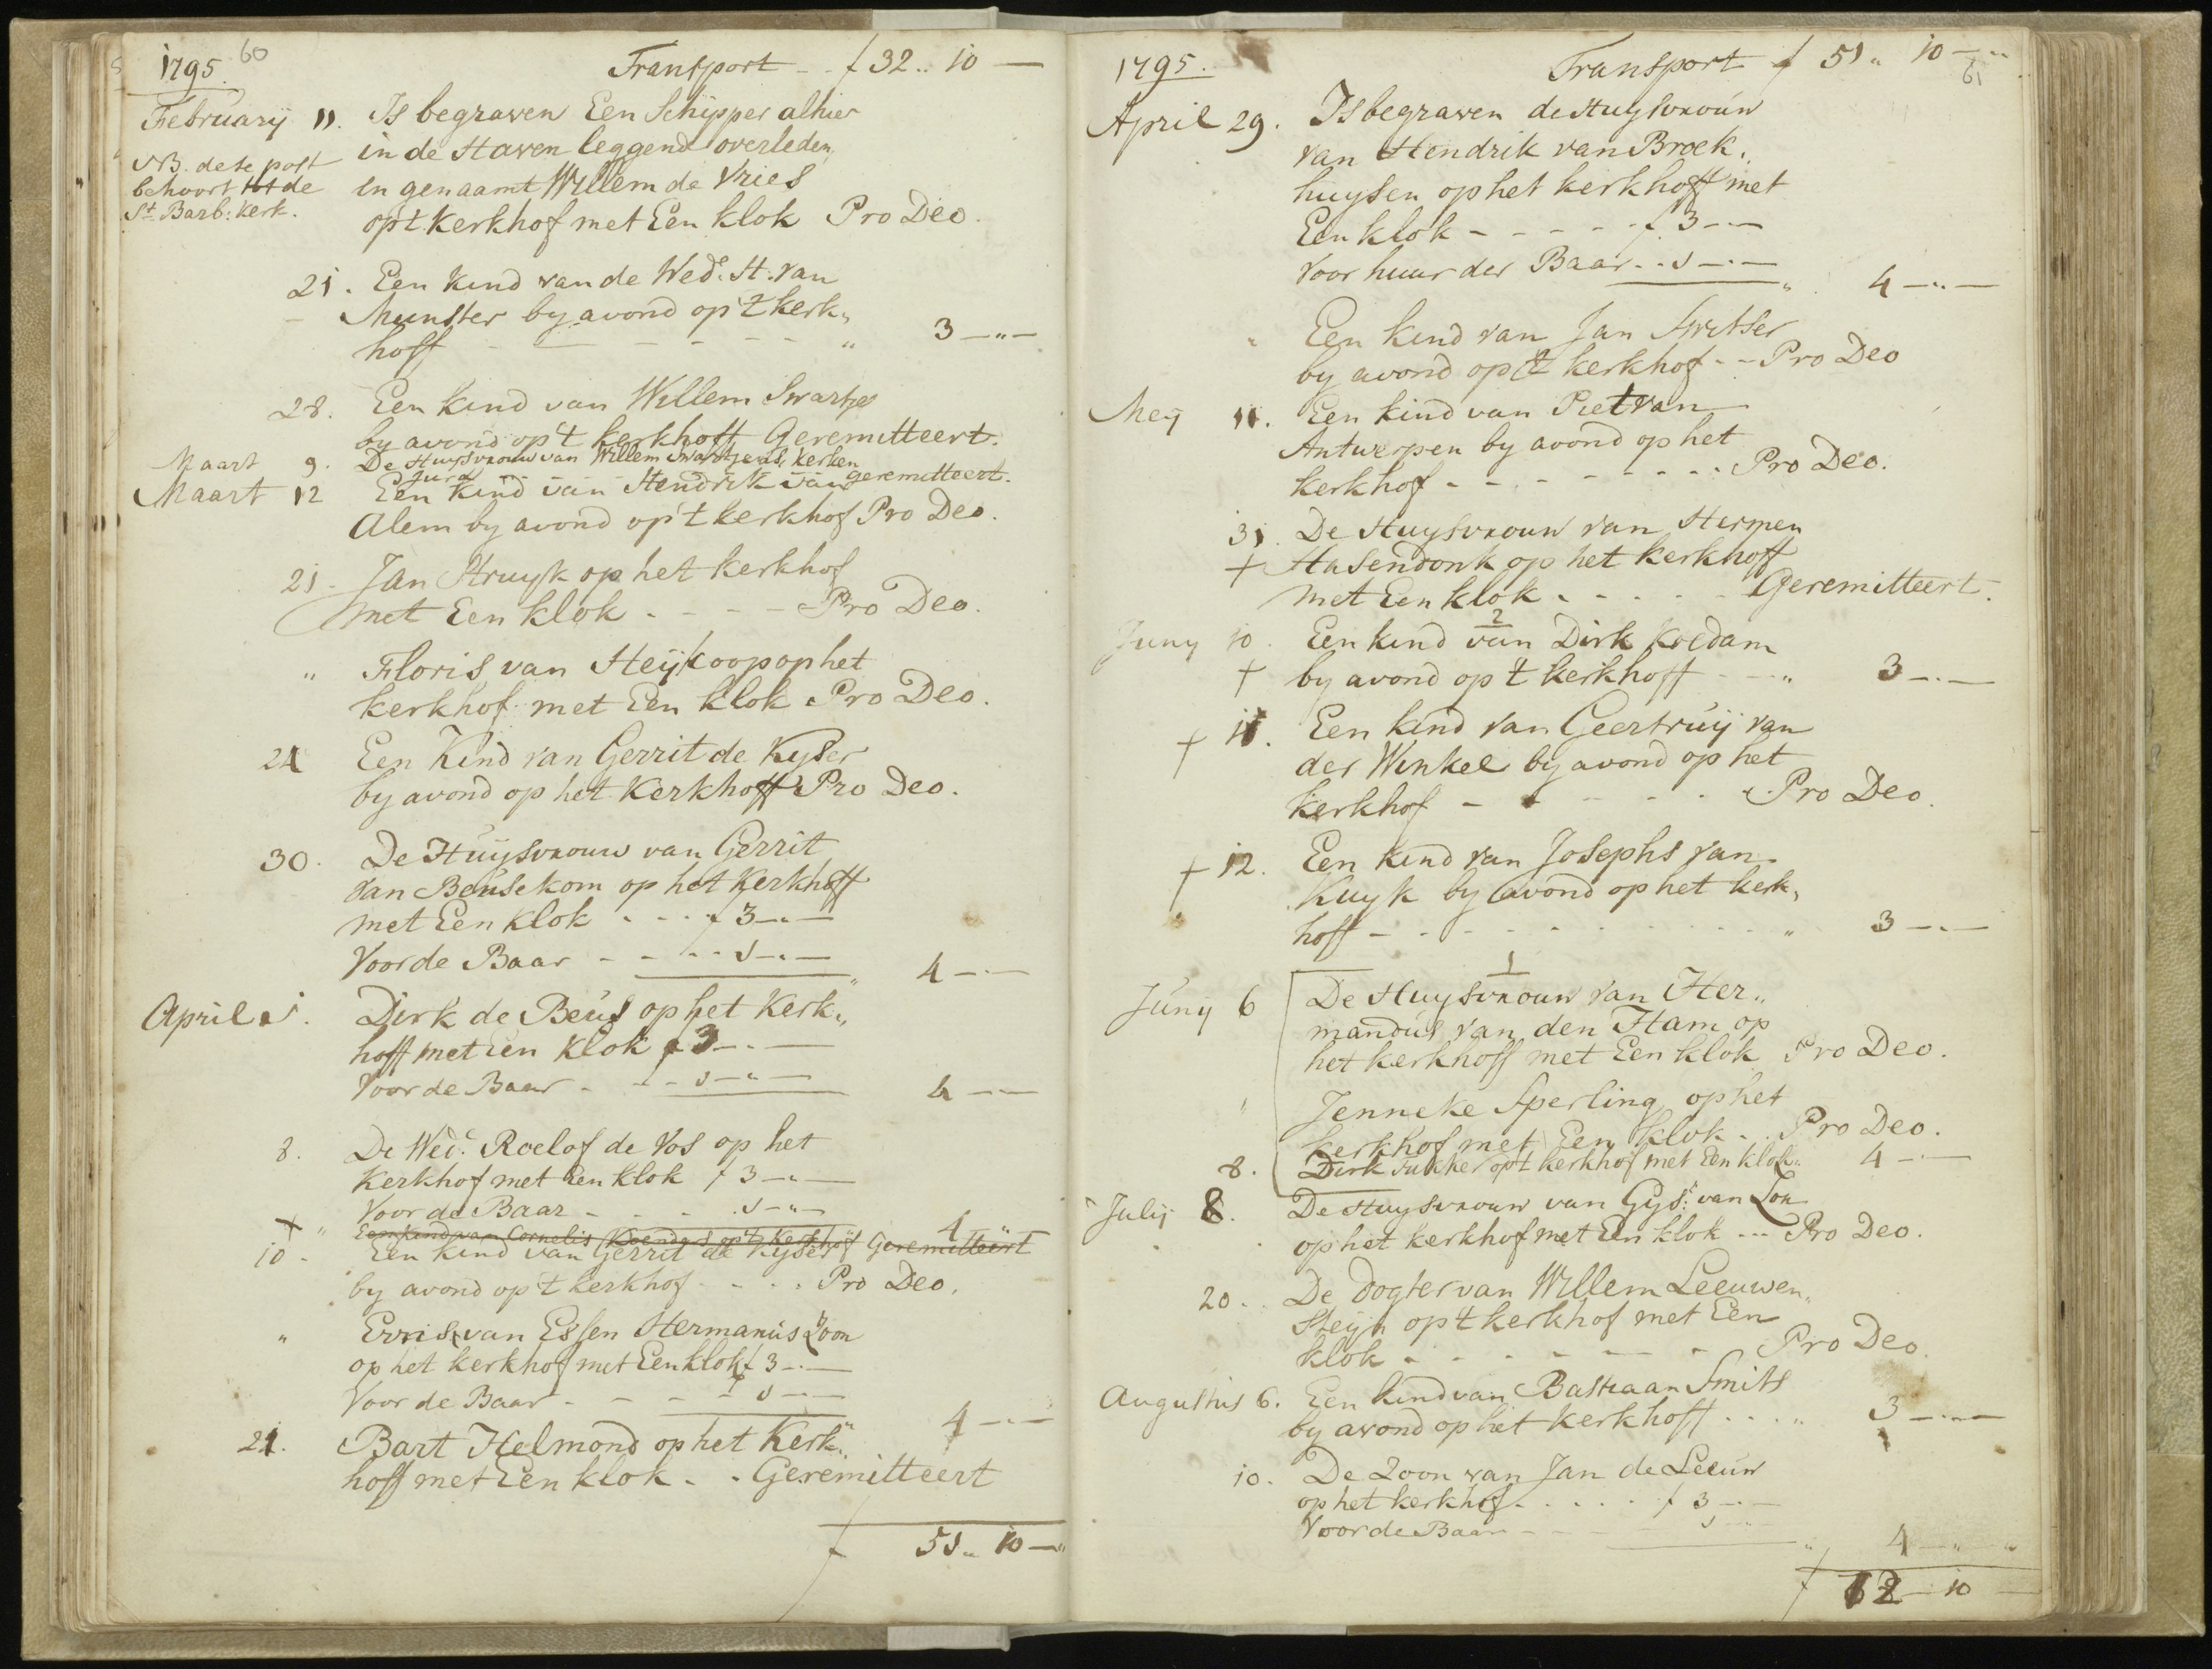 1795. 60
Transport - - f 32 .. 10 —
February 11. Is begraven Een Schipper alhier
in de Haven leggend overleden
en genaamt Willem de Vries
op t kerkhof met Een klok Pro Deo.
NB. dese post
behoort tot de
St. Barb: kerk.
21. Een kind van de Wede. H. van
Munster by avond op 't kerk„
hoff - - - - - - „ 3 —„—
28. Een kind van Willem Swartjes
by avond op 't kerkhoff Geremitteert.
Maart 9. De Huysvrouw van Willem Swartjens, kerken
geremitteert.
Maart 12 Een kind van Hendrik van
Alem by avond op 't kerkhof Pro Deo.
21. Jan Struyk op het kerkhof
met Een klok - - - - Pro Deo.
„ Floris van Heykoop op het
kerkhof met Een klok Pro Deo.
24 Een Kind van Gerrit de Kyser
by avond op het Kerkhoff Pro Deo.
30. De Huysvrouw van Gerrit
van Beusekom op het Kerkhoff
met Een klok - - - f 3 —„—
Voor de Baar - - - - 1 —„—
„ 4 —„—
April 1. Dirk de Beus op het Kerk„
hoff met een klok f 3 —„—
Voor de Baar - - - 1 —„—
4 —„—
8. De Wed: Roelof de Vos op het
Kerkhof met Een klok f 3 —„—
Voor de Baar - - - - 1 —„—
4 „
+ „ Een kind van Cornelis Koenders op 't kerkhof Geremitteert
10. Een kind van Gerrit de Kyser
by avond op 't kerkhof - - - - Pro Deo.
„ Evris van Essen Hermanus Zoon
op het kerkhof met Een klok f 3 —„—
Voor de Baar - - - - 1 —„—
4 —„—
21. Bart Helmond op het Kerk„
hoff met Een klok - - Geremitteert
f 51 „ 10 —„
1795. Transport f 51 „ 10 —„
61
April 29. Is begraven de Huysvrouw
van Hendrik van Broek„
huysen op het kerkhoff met
Een klok - - - - - f 3 —„—
Voor huur der Baar - - 1 —„—
„ 4 —„—
„ Een kind van Jan Switser
by avond op 't kerkhof - - Pro Deo
Mey 11. Een kind van Piet van
Antwerpen by avond op het
kerkhof - - - - - - - Pro Deo.
31. De Huysvrouw van Hermen
+ Hasendonk op het kerkhoff
met Een klok - - - - - Geremitteert.
2
Juny 10. Een kind van Dirk Koedam
+ by avond op 't kerkhoff - - „ 3 —„—
+ 11. Een kind van Geertruy van
der Winkel by avond op het
kerkhof - - - - - - Pro Deo.
+ 12. Een kind van Josephs van
Kuyk by avond op het kerk„
hoff - - - - - - - - - „ 3 —„—
1
Juny 6 De Huysvrouw van Her„
mandus van den Ham op
het kerkhoff met Een klok Pro Deo.
„ Jenneke Sperling op het
kerkhof met Een klok - - Pro Deo.
8. Dirk Tukker op 't kerkhof met Een klok „ 4 —„—
July 8. De Huysvrouw van Gys: van Lon
op het kerkhof met Een klok --- Pro Deo.
20. De dogter van Willem Leeuwen„
Steyn op 't kerkhof met Een
klok - - - - - - - Pro Deo.
Augustus 6. Een kind van Bastiaan Smits
by avond op het kerkhoff - - - „ 3 —„—
10. De Zoon van Jan de Leeuw
op het kerkhof - - - - - f 3 —„—
Voor de Baar - - - 1 —„—
„ 4 —„—„
f 72 — 10